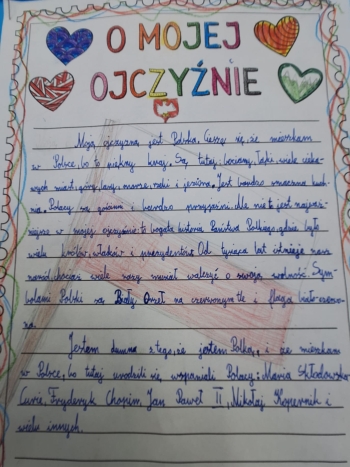 O MOJEJ
OJCZYŹNIE
Moją ojczyzną jest Polska. Cieszę się, że mieszkam
w Polsce, bo to piękny kraj. Są tutaj bociany, łąki, wiele cieka-
wych miast, góry, lasy, morze, rzeki i jeziora. Jest bardzo smaczna kuch-
nia. Polacy są gościnni i bardzo przyjaźni, ale nie to jest najważ-
niejsze w mojej ojczyźnie to bogata historia Państwa Polskiego, gdzie było
wielu królów, władców i prezydentów. Od tysiąca lat istnieje nasz
naród, chociaż wiele razy musiał walczyć o swoją wolność. Sym-
bolami Polski są Biały Orzeł na czerwonym tle i flaga biało-czerwo-
na.
Jestem dumna z tego, że jestem Polką, i że mieszkam
w Polsce, bo tutaj urodzili się, wspaniali Polacy: Maria Skłodowska-
Curie, Fryderyk Chopin, Jan Paweł II, Mikołaj Kopernik i
wielu innych.